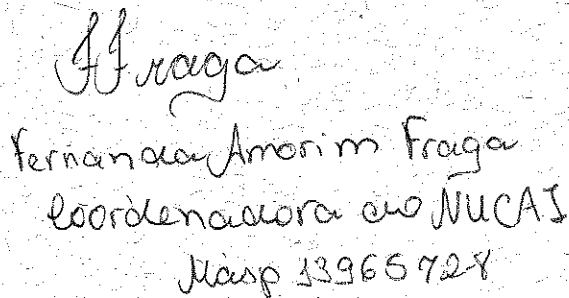 FFraga
Fernanda Amorim Fraga
Coordenadora do NUCAI
Masp 13965728